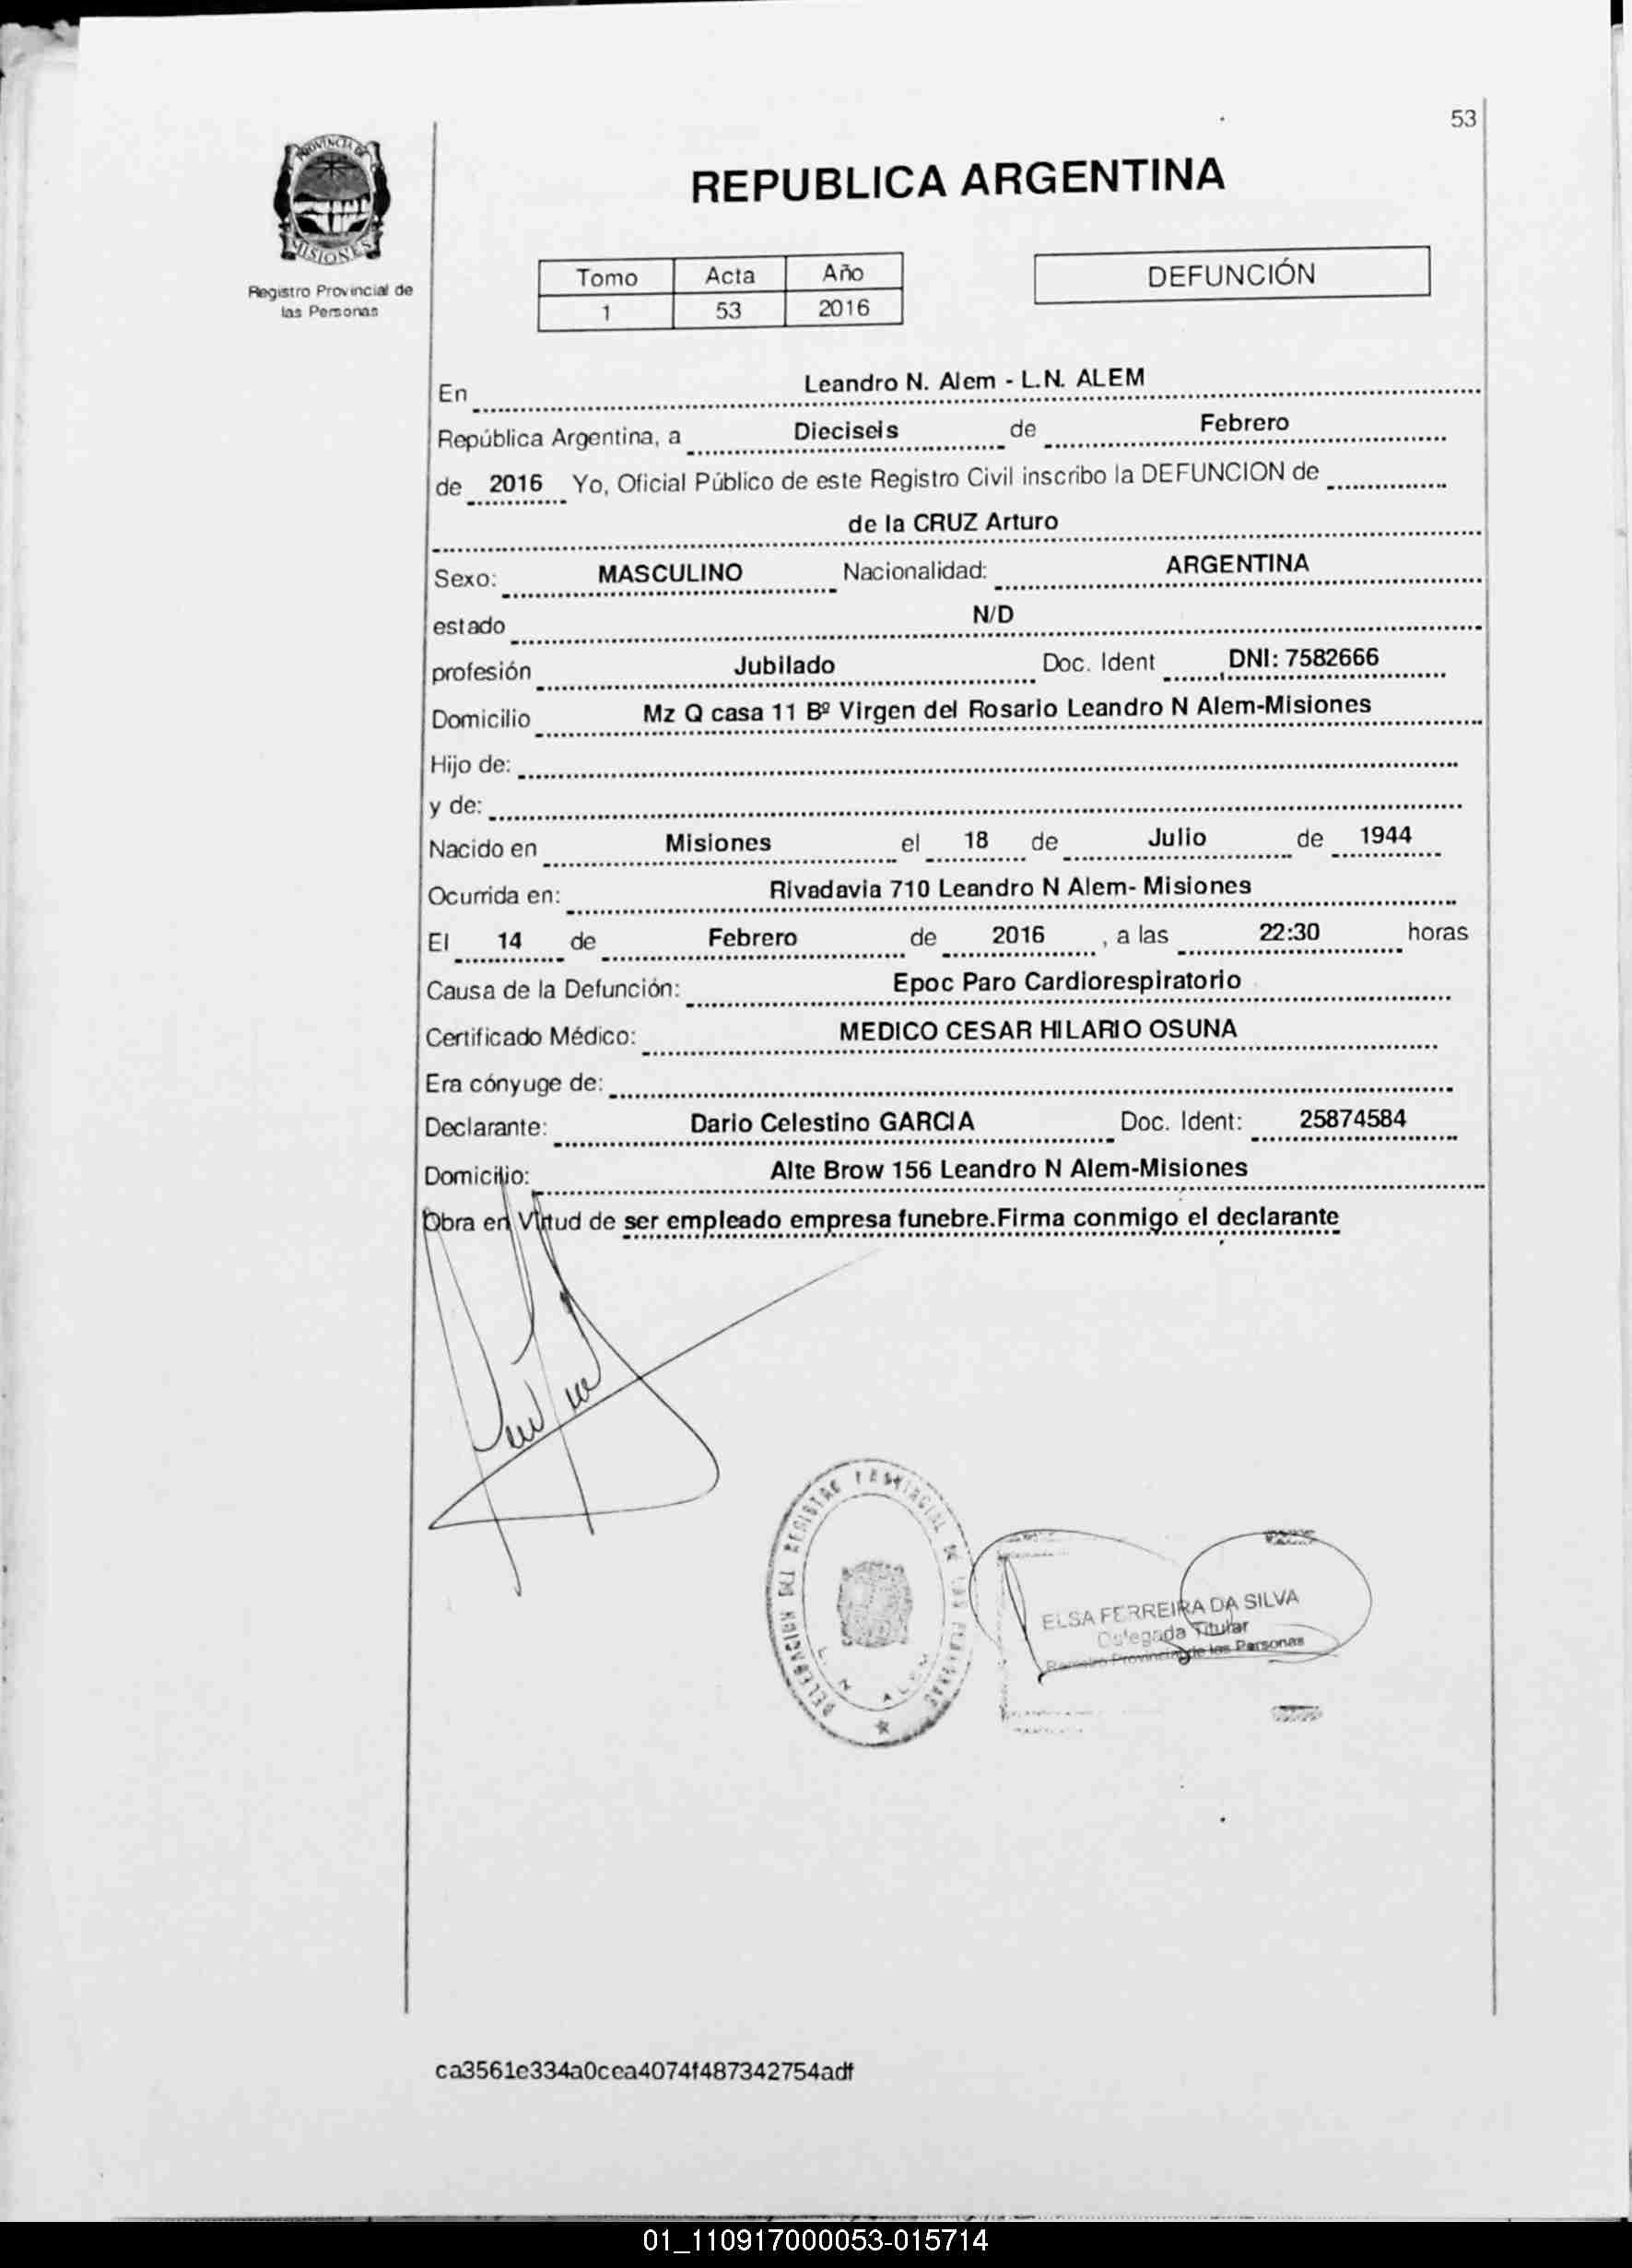 53
PROVINCIA DE
MISIONES
Registro Provincial de
las Personas
REPUBLICA ARGENTINA
Tomo Acta Año
1 53 2016
DEFUNCIÓN
En Leandro N. Alem - L.N. ALEM
República Argentina, a Dieciseis de Febrero
de 2016 Yo, Oficial Público de este Registro Civil inscribo la DEFUNCION de
de la CRUZ Arturo
Sexo: MASCULINO Nacionalidad: ARGENTINA
estado N/D
profesión Jubilado Doc. Ident DNI: 7582666
Domicilio Mz Q casa 11 Bº Virgen del Rosario Leandro N Alem-Misiones
Hijo de:
y de:
Nacido en Misiones el 18 de Julio de 1944
Ocurrida en: Rivadavia 710 Leandro N Alem- Misiones
El 14 de Febrero de 2016 , a las 22:30 horas
Causa de la Defunción: Epoc Paro Cardiorespiratorio
Certificado Médico: MEDICO CESAR HILARIO OSUNA
Era cónyuge de:
Declarante: Dario Celestino GARCIA Doc. Ident: 25874584
Domicilio: Alte Brow 156 Leandro N Alem-Misiones
Obra en Virtud de ser empleado empresa funebre.Firma conmigo el declarante
DELEGACION DEL REGISTRO PROVINCIAL DE LAS PERSONAS
L. N. ALEM
ELSA FERREIRA DA SILVA
Delegada Titular
Registro Provincial de las Personas
ca3561e334a0cea4074f487342754adf
01_110917000053-015714